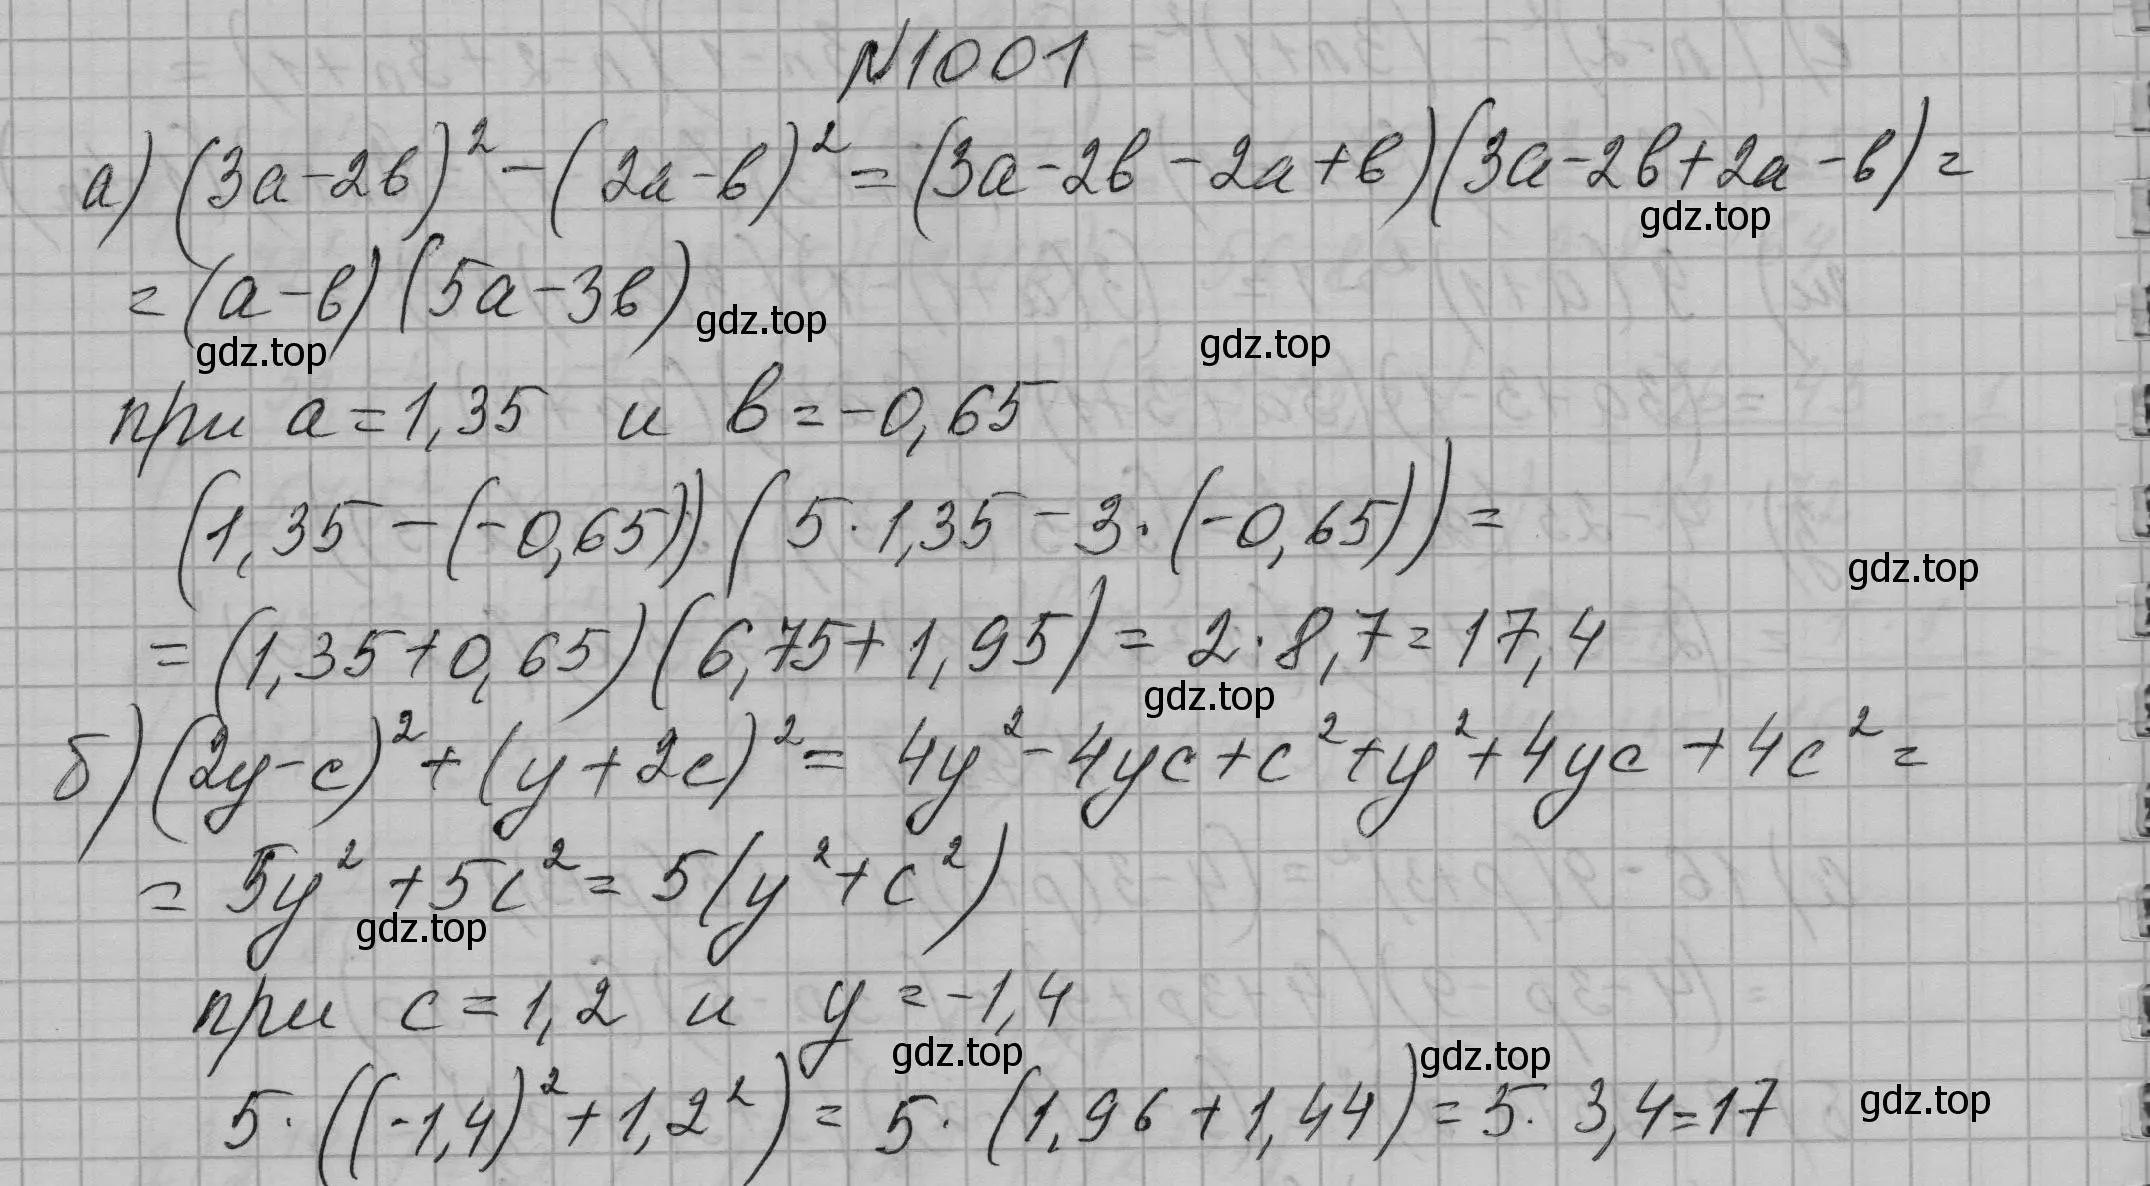 №1001
а) (3a-2b)² - (2a-b)² = (3a-2b-2a+b)(3a-2b+2a-b) =
gdz.top
= (a-b)(5a-3b)
gdz.top
gdz.top
gdz.top
при a = 1,35 и b = -0,65
(1,35 - (-0,65)) (5·1,35 - 3·(-0,65)) =
gdz.top
= (1,35+0,65)(6,75+1,95) = 2·8,7 = 17,4
gdz.top
б) (2y-c)² + (y+2c)² = 4y² - 4yc + c² + y² + 4yc + 4c² =
= 5y² + 5c² = 5(y² + c²)
gdz.top
при c = 1,2 и y = -1,4
gdz.top
gdz.top
5·((-1,4)² + 1,2²) = 5·(1,96 + 1,44) = 5·3,4 = 17
gdz.top